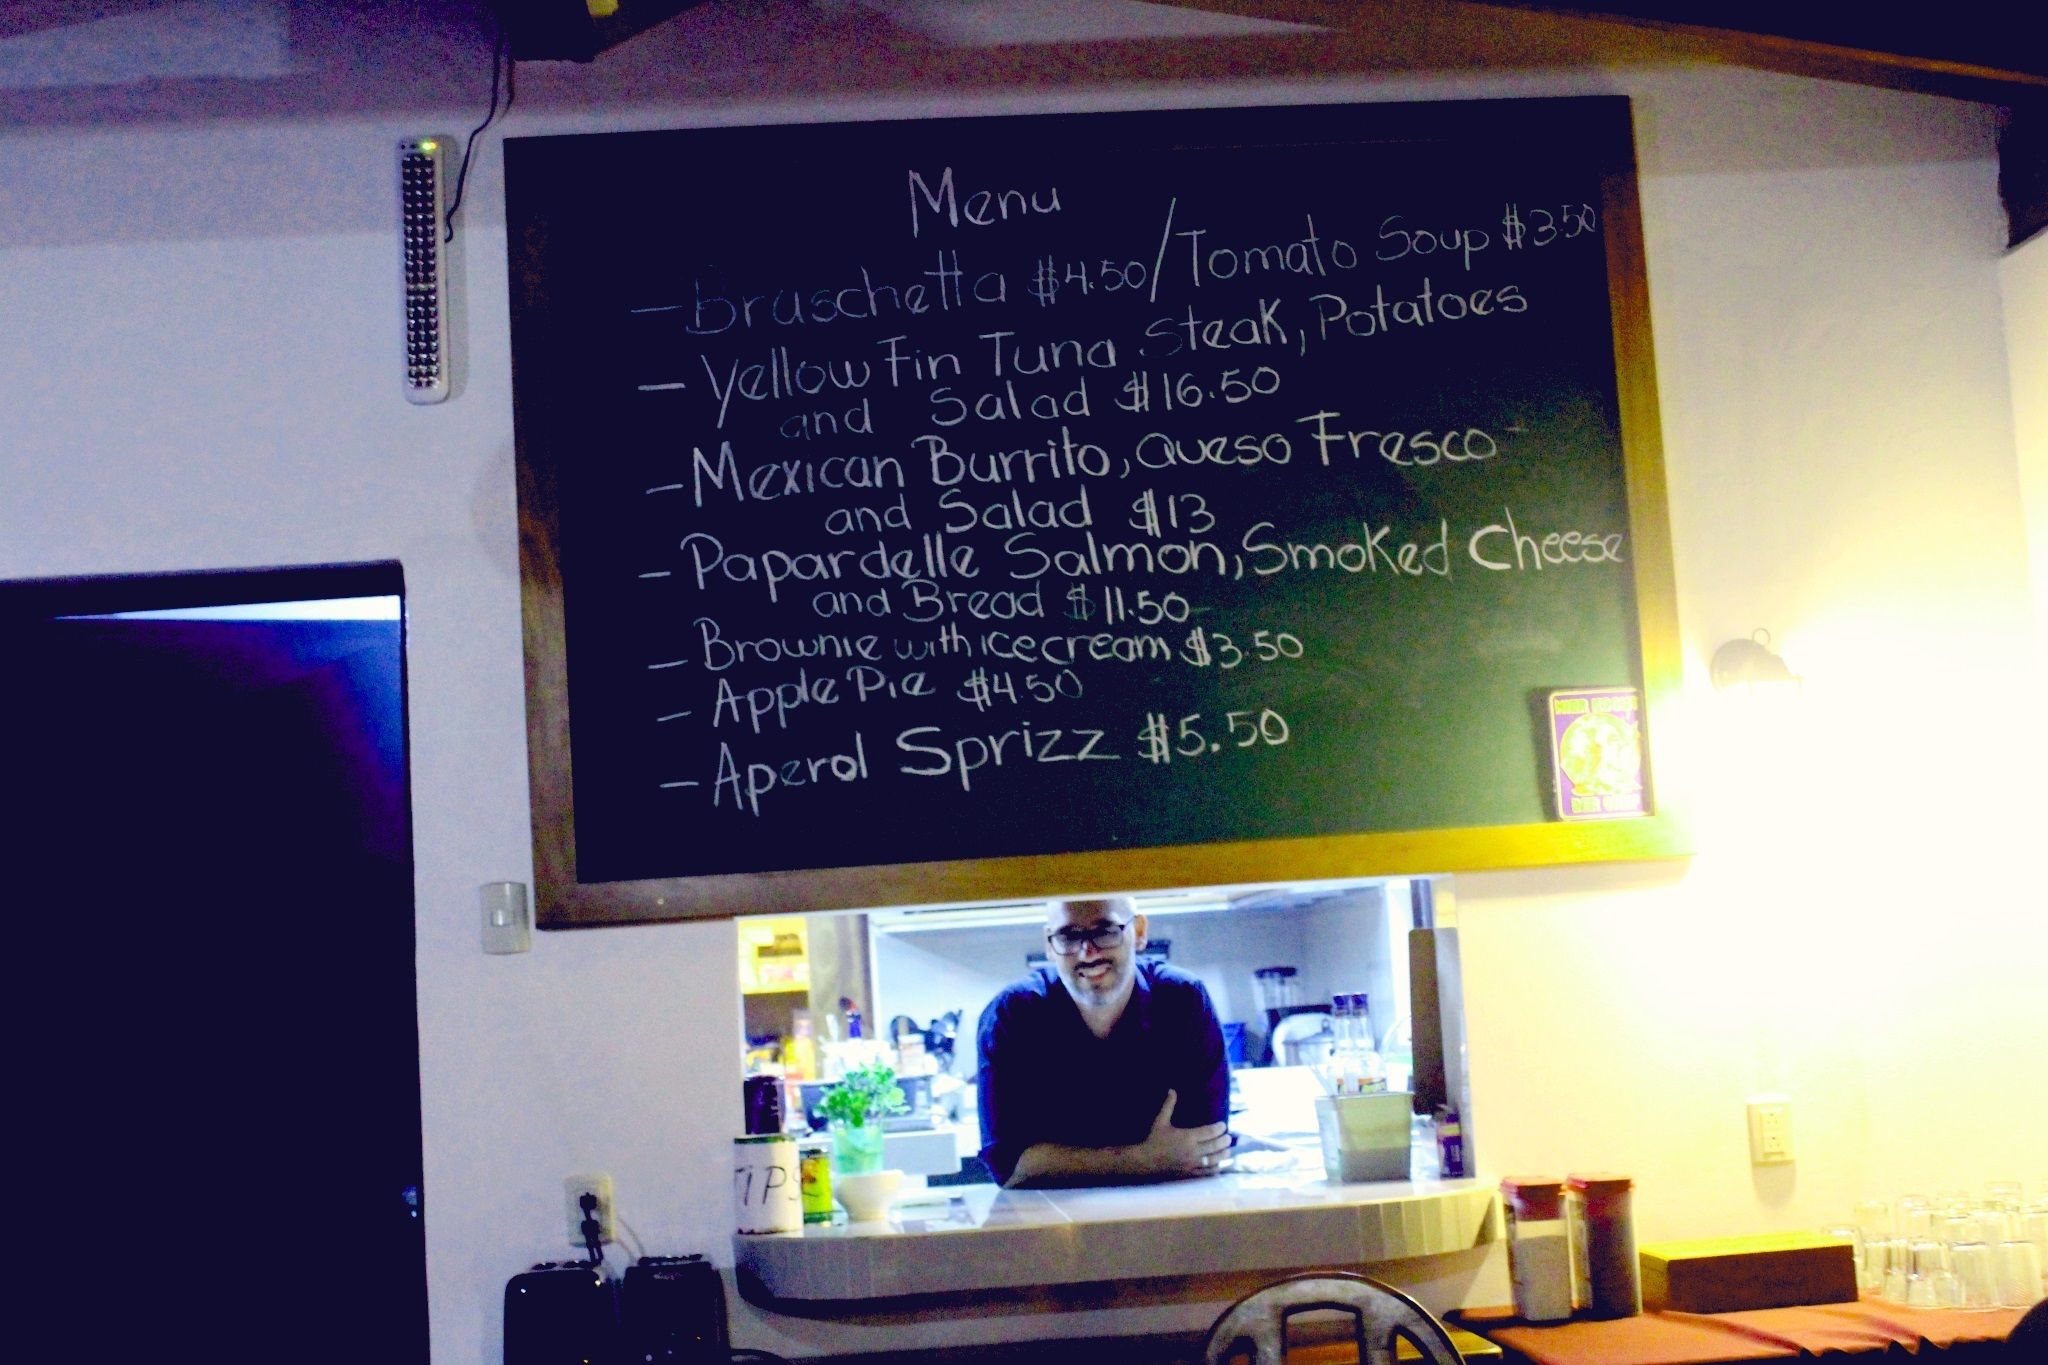 Menu
- Bruschetta $4.50 / Tomato Soup $3.50
- Yellow Fin Tuna Steak, Potatoes
and Salad $16.50
- Mexican Burrito, Queso Fresco
and Salad $13
- Papardelle Salmon, Smoked Cheese
and Bread $11.50
- Brownie with ice cream $3.50
- Apple Pie $4.50
- Aperol Sprizz $5.50
TIPS